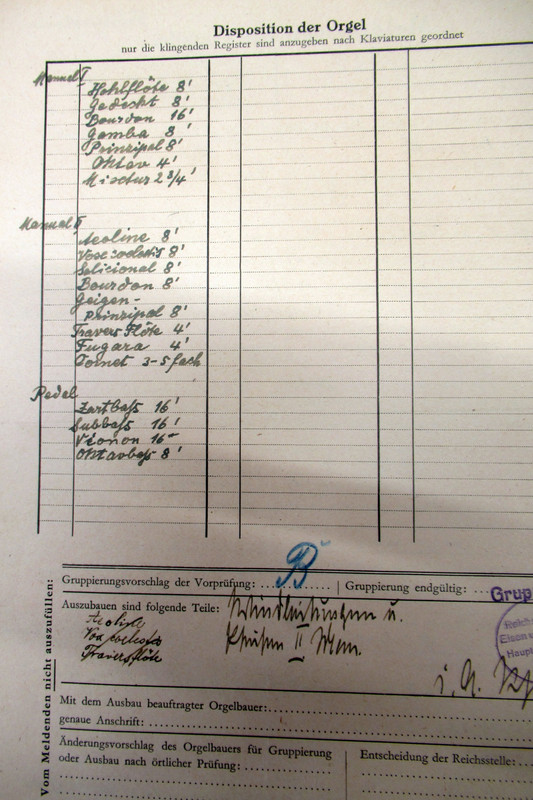 Disposition der Orgel
nur die klingenden Register sind anzugeben nach Klaviaturen geordnet
Manual I
Hohlflöte 8'
Gedeckt 8'
Bourdon 16'
Gamba 8'
Prinzipal 8'
Oktav 4'
Mixtur 2 3/4'
Manual II
Aeoline 8'
Vox coelestis 8'
Salicional 8'
Bourdon 8'
Geigen-
Prinzipal 8'
Travers Flöte 4'
Fugara 4'
Cornet 3-5 fach
Pedal
Zartbaß 16'
Subbaß 16'
Violon 16'
Oktavbaß 8'
Vom Meldenden nicht auszufüllen:
Gruppierungsvorschlag der Vorprüfung: B
Gruppierung endgültig:
Grup
Auszubauen sind folgende Teile: Windleitungen u.
Aeoline
Vox coelestis
Traversflöte
Pfeifen II Man.
Reich
Eisen u
Haupt
i. A.
Mit dem Ausbau beauftragter Orgelbauer:
genaue Anschrift:
Änderungsvorschlag des Orgelbauers für Gruppierung
oder Ausbau nach örtlicher Prüfung:
Entscheidung der Reichsstelle: